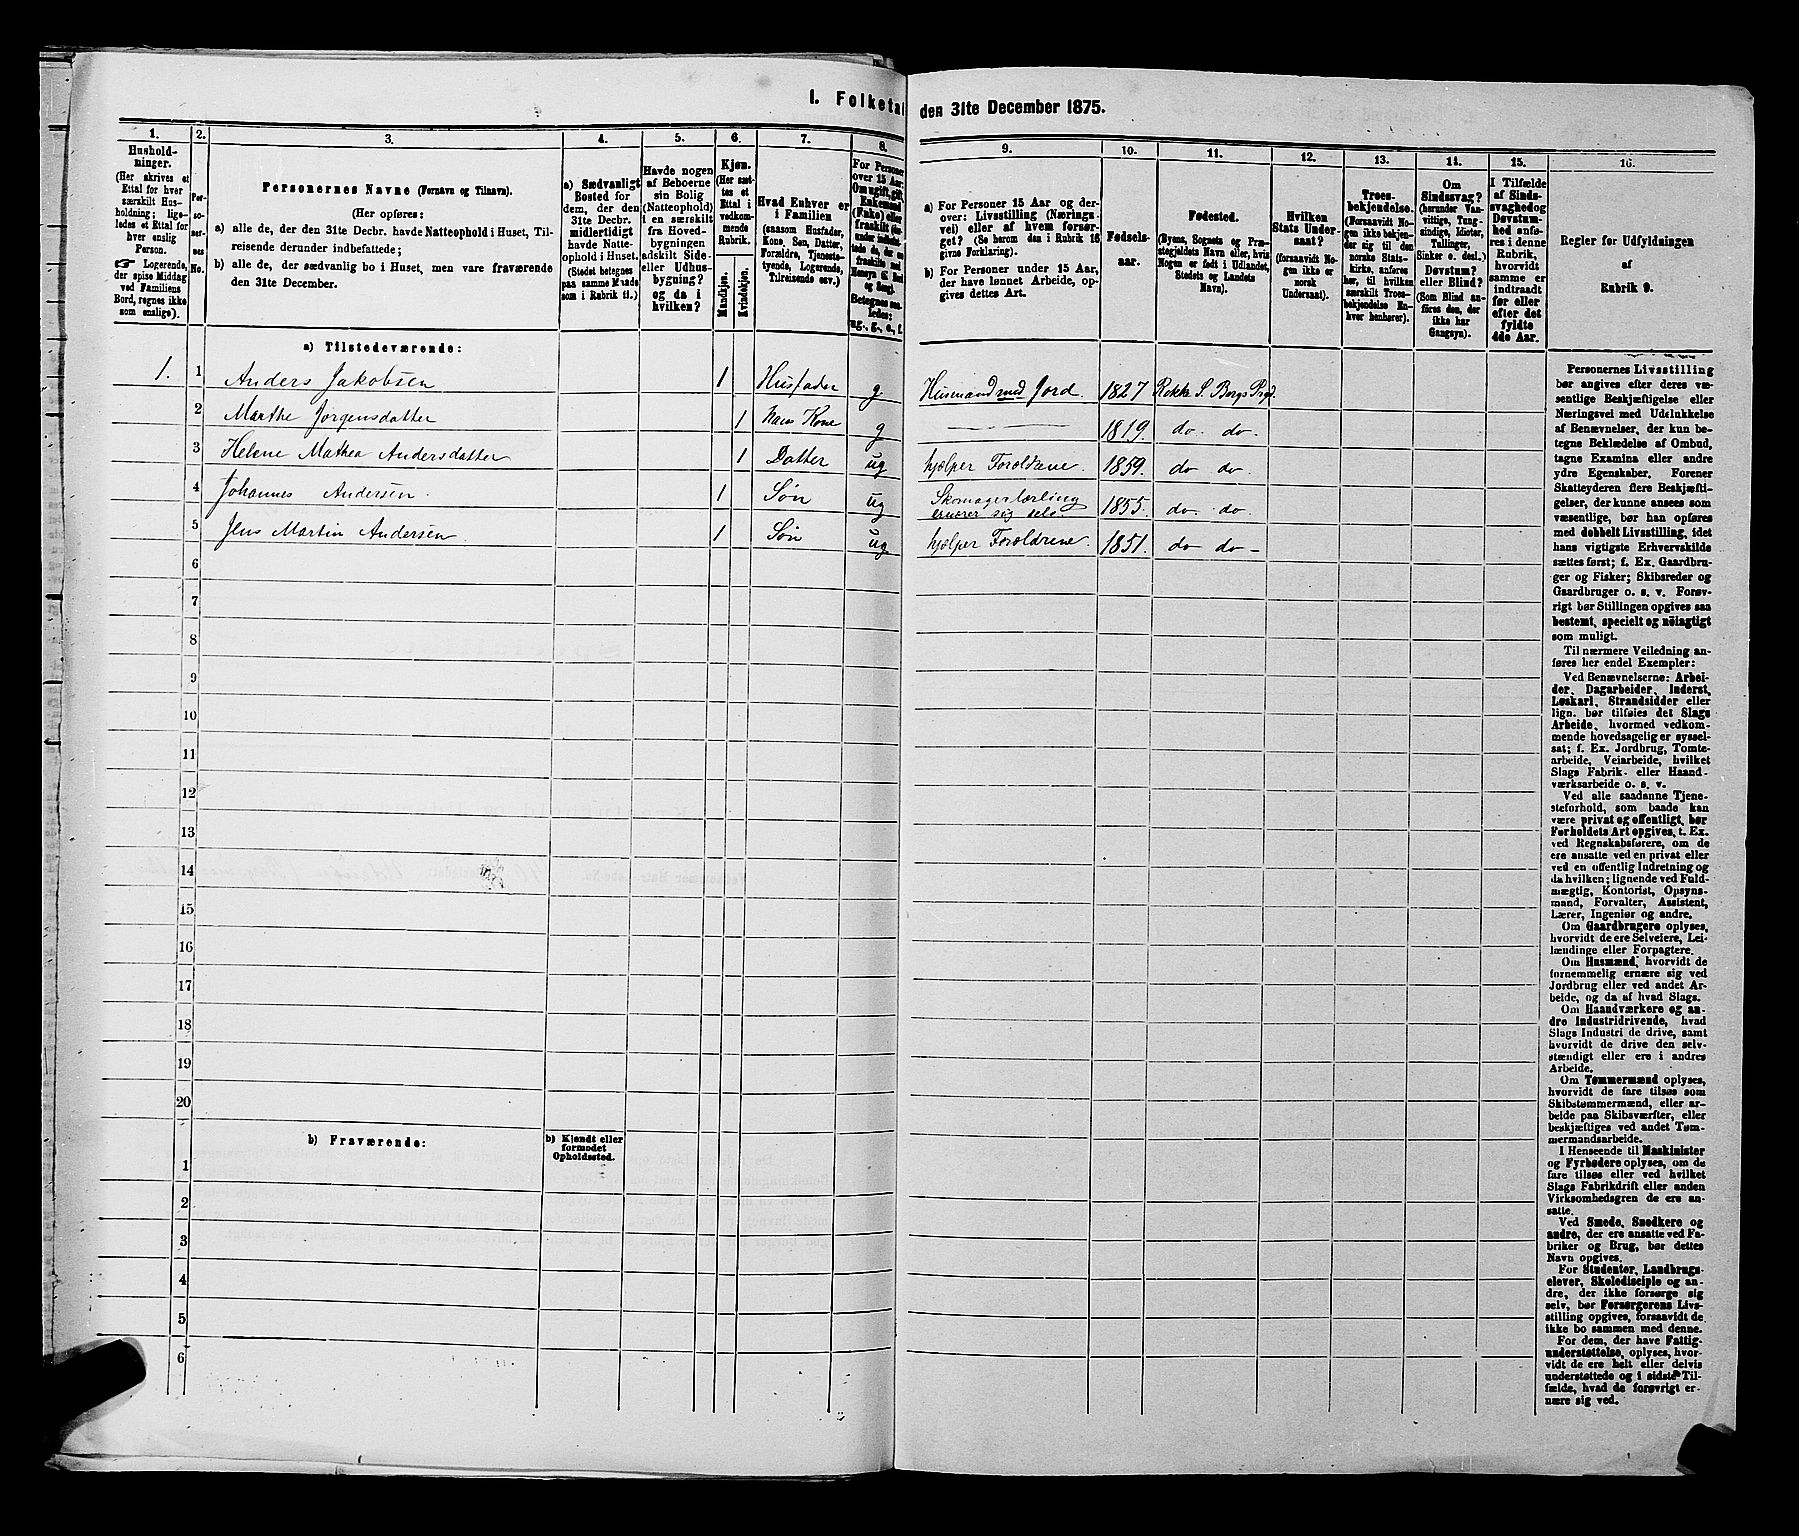 I. Folketal den 31te December 1875.
1.
Hushold-
ninger.
(Her skrives et
Ettal for hver
særskilt Hus-
holdning; lige-
ledes et Ettal for
hver enslig
Person.
Logerende,
der spise Middag
ved Familiens
Bord, regnes ikke
som enslige).
2.
Per-
so-
ner-
nes
No.
3.
Personernes Navne (Fornavn og Tilnavn).
(Her opføres:
a) alle de, der den 31te Decbr. havde Natteophold i Huset, Til-
reisende derunder indbefattede;
b) alle de, der sædvanlig bo i Huset, men vare fraværende
den 31te December.
4.
a) Sædvanligt
Bosted for
dem, der den
31te Decbr.
midlertidigt
havde Natte-
ophold i Huset.
(Stedet betegnes
paa samme Maade
som i Rubrik 11.)
5.
Havde nogen
af Beboerne
sin Bolig
(Natteophold)
i en særskilt
fra Hoved-
bygningen
adskilt Side-
eller Udhus-
bygning?
og da i
hvilken?
6.
Kjøn.
(Her sæt-
tes et
Ettal i
vedkom-
mende
Rubrik.
Mandkjøn.
Kvindekjøn.
7.
Hvad Enhver er
i Familien
(saasom Husfader,
Kone, Søn, Datter,
Forældre, Tjeneste-
tyende, Logerende,
Tilreisende osv.)
8.
For Personer
over 15 Aar:
Om ugift, gift,
Enkemand
(Enke) eller
fraskilt
Betegnes saa-
ledes:
ug., g., e., f.
9.
a) For Personer 15 Aar og der-
over: Livsstilling (Nærings-
vei) eller af hvem forsør-
get? (Se herom den i Rubrik 16
givne Forklaring).
b) For Personer under 15 Aar,
der have lønnet Arbeide, op-
gives dettes Art.
10.
Fødsels-
aar.
11.
Fødested.
(Byens, Sognets og Præ-
stegjeldets Navn eller, hvis
Nogen er født i Udlandet,
Stedets og Landets
Navn).
12.
Hvilken
Stats Under-
saat?
(forsaavidt No-
gen ikke er
norsk
Undersaat).
13.
Troes-
bekjendelse.
(Forsaavidt No-
gen ikke bekjen-
der sig til den
norske Stats-
kirke, anføres
her, til hvilken
særskilt Troes-
bekjendelse En-
hver henhører).
14.
Om
Sindssvag?
(herunder Van-
vittige, Tung-
sindige, Idioter,
Tullinger,
Sinker o. desl.)
Døvstum?
eller Blind?
(Som Blind an-
føres den, der
ikke har
Gangsyn).
15.
I Tilfælde
af Sinds-
svaghed og
Døvstum-
hed anfø-
res i denne
Rubrik,
hvorvidt
samme er
indtraadt
før eller
efter det
fyldte
4de Aar.
16.
Regler for Udfyldningen
af
Rubrik 9.
a) Tilstedeværende:
1. 1 Anders Jakobsen 1 Husfader g Husmand med Jord. 1827 Rokke S. Bergs Prgj.
2 Marthe Jorgensdatter 1 hans Kone g — 1819. do. do.
3 Helene Mathea Andersdatter 1 Datter ug hjelper Foroldrene. 1859. do do.
4 Johannes Andersen. 1 Søn ug Skomagerlærling ernærer sig selv. 1855. do. do.
5 Jens Martin Andersen. 1 Søn ug hjelper Foroldrene. 1851. do do —
6
7
8
9
10
11
12
13
14
15
16
17
18
19
20
b) Fraværende:
b) Kjendt eller
formodet
Opholdssted.
1
2
3
4
5
6
Personernes Livsstilling
bør angives efter deres væ-
sentlige Beskjæftigelse eller
Næringsvei med Udelukkelse
af Benævnelser, der kun be-
tegne Beklædelse af Ombud,
tagne Examina eller andre
ydre Egenskaber. Forener
Skatteyderen flere Beskjæfti-
gelser, der kunne ansees som
væsentlige, bør han opføres
med dobbelt Livsstilling, idet
hans vigtigste Erhvervskilde
sættes først; f. Ex. Gaardbru-
ger og Fisker; Skibsreder og
Gaardbruger o. s. v. Forøv-
rigt bør Stillingen opgives saa
bestemt, specielt og nöiagtigt
som muligt.
Til nærmere Veiledning an-
føres her endel Exempler:
Ved Benævnelserne: Arbei-
der, Dagarbeider, Inderst,
Løskarl, Strandsidder eller
lign. bør tilføies det Slags
Arbeide, hvormed vedkom-
mende hovedsagelig er syssel-
sat; f. Ex. Jordbrug, Tomte-
arbeide, Veiarbeide, hvilket
Slags Fabrik- eller Haand-
værksarbeide o. s. v.
Ved alle saadanne Tjene-
steforhold, som baade kan
være privat og offentligt, bør
Forholdets Art opgives, t. Ex.
ved Regnskabsførere, om de
ere ansatte ved en privat eller
ved en offentlig Indretning og
da hvilken; lignende ved Fuld-
mægtig, Kontorist, Opsyns-
mand, Forvalter, Assistent,
Lærer, Ingeniør og andre.
Om Gaardbrugere oplyses,
hvorvidt de ere Selveiere, Lei-
lændinge eller Forpagtere.
Om Husmænd, hvorvidt de
fornemmelig ernære sig ved
Jordbrug eller ved andet Ar-
beide, og da af hvad Slags.
Om Haandværkere og an-
dre Industridrivende, hvad
Slags Industri de drive, samt
hvorvidt de drive den selv-
stændigt eller ere i andres
Arbeide.
Om Tømmermænd oplyses,
hvorvidt de fare tilsøs som
Skibstømmermænd, eller ar-
beide paa Skibsværfter, eller
beskjæftiges ved andet Tøm-
mermandsarbeide.
I Henseende til Maskinister
og Fyrbødere oplyses, om de
fare tilsøs eller ved hvilket
Slags Fabrikdrift eller anden
Virksomhedsgren de ere an-
satte.
Ved Smede, Snedkere og
andre, der ere ansatte ved Fa-
briker og Brug, bør dettes
Navn opgives.
For Studenter, Landbrugs-
elever, Skoledisciple og an-
dre, der ikke forsørge sig
selv, bør Forsørgerens Livs-
stilling opgives, forsaavidt de
ikke bo sammen med denne.
For dem, der have Fattig-
understøttelse, oplyses, hvor-
vidt de ere helt eller delvis
understøttede og i sidste Til-
fælde, hvad de forøvrigt er-
nære sig ved.